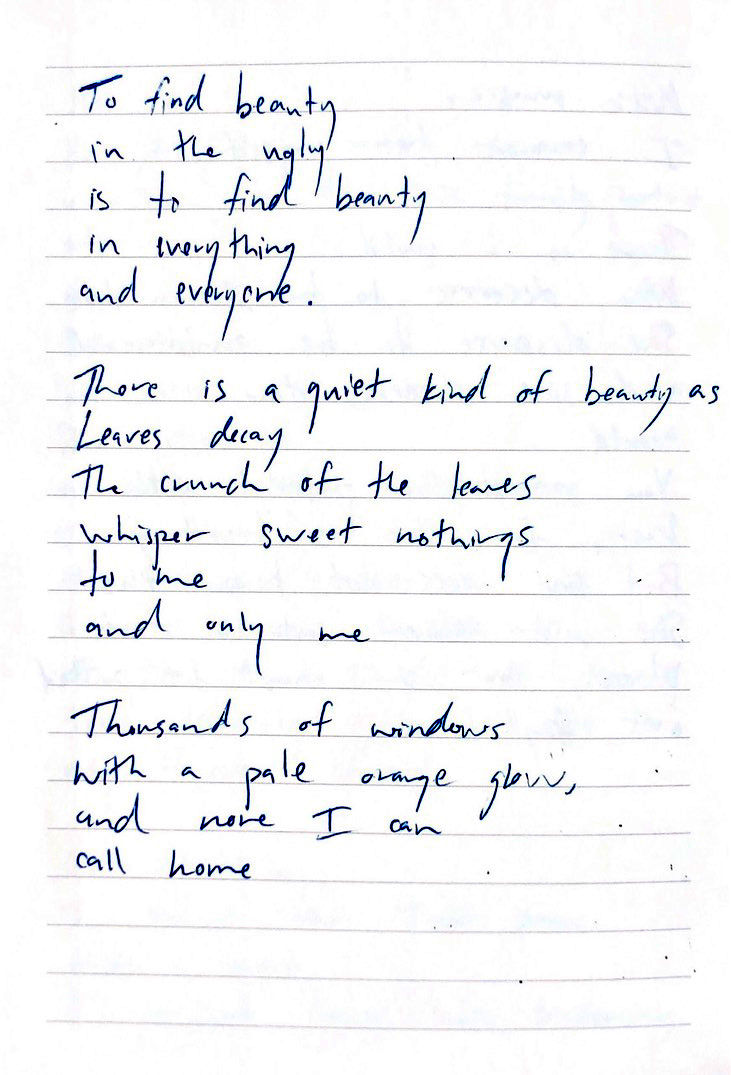 To find beauty
in the ugly
is to find beauty
in everything
and everyone.
There is a quiet kind of beauty as
Leaves decay
The crunch of the leaves
whisper sweet nothings
to me
and only me
Thousands of windows
with a pale orange glow,
and none I can
call home